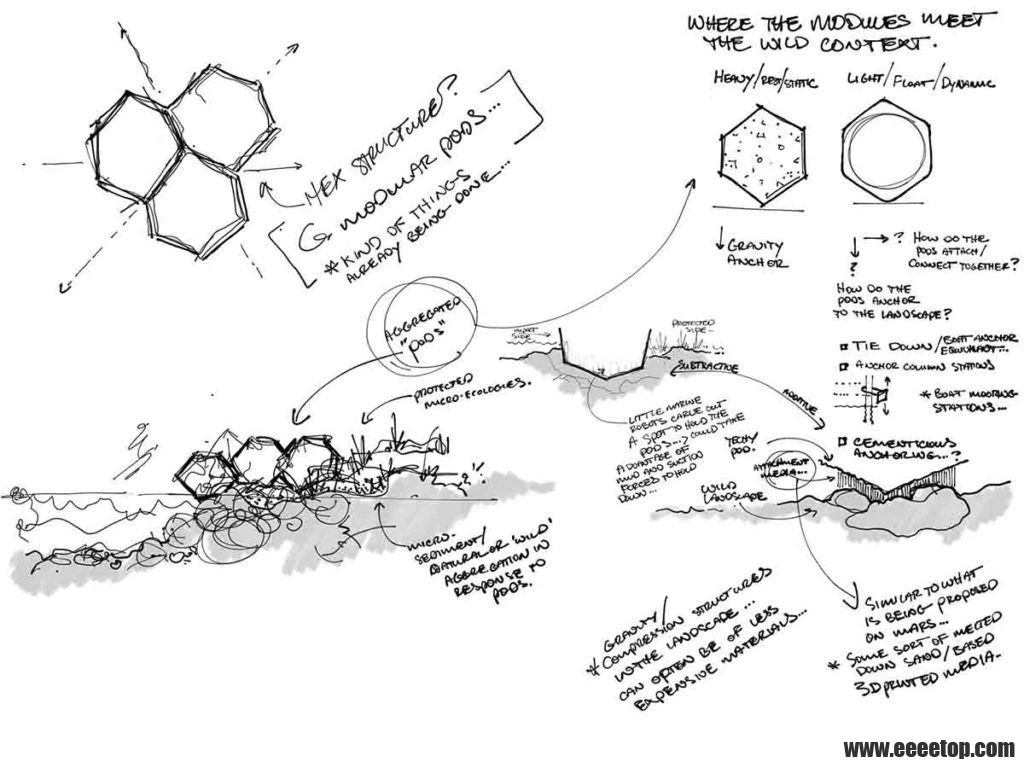 WHERE THE MODULES MEET
THE WILD CONTEXT.
HEAVY/REST/STATIC
LIGHT/FLOAT/DYNAMIC
HEX STRUCTURES.
MODULAR PODS...
* KIND OF THINGS
ALREADY BEING DONE...
GRAVITY
ANCHOR
? HOW DO THE
PODS ATTACH/
CONNECT TOGETHER?
?
HOW DO THE
PODS ANCHOR
TO THE LANDSCAPE?
TIE DOWN/BOAT ANCHOR
ANCHOR COLUMN STATIONS
* BOAT MOORING
STATIONS...
CEMENTICIOUS
ANCHORINGS...?
AGGREGATED
"PODS"
PROTECTED
MICRO-ECOLOGIES.
SIDE
PROTECTED
SIDE
SUBTRACTIVE
ADDITIVE
LITTLE MARINE
ROBOTS CARVE OUT
A SPOT TO HOLD THE
PODS...? COULD TAKE
ADVANTAGE OF
MUD AND SUCTION
FORCES TO HOLD
DOWN...
TECHY
POD.
ATTACHMENT
MEDIA...
WILD
LANDSCAPE
MICRO-
SEDIMENT/
NATURAL OR "WILD"
AGGREGATION IN
RESPONSE TO
PODS.
GRAVITY/
* COMPRESSION STRUCTURES
IN THE LANDSCAPE...
CAN OFTEN BE OF LESS
EXPENSIVE MATERIALS...
SIMILAR TO WHAT
IS BEING PROPOSED
ON MARS...
* SOME SORT OF MELTED
DOWN SAND/BASED
3D PRINTED MEDIA.
www.eeeetop.com